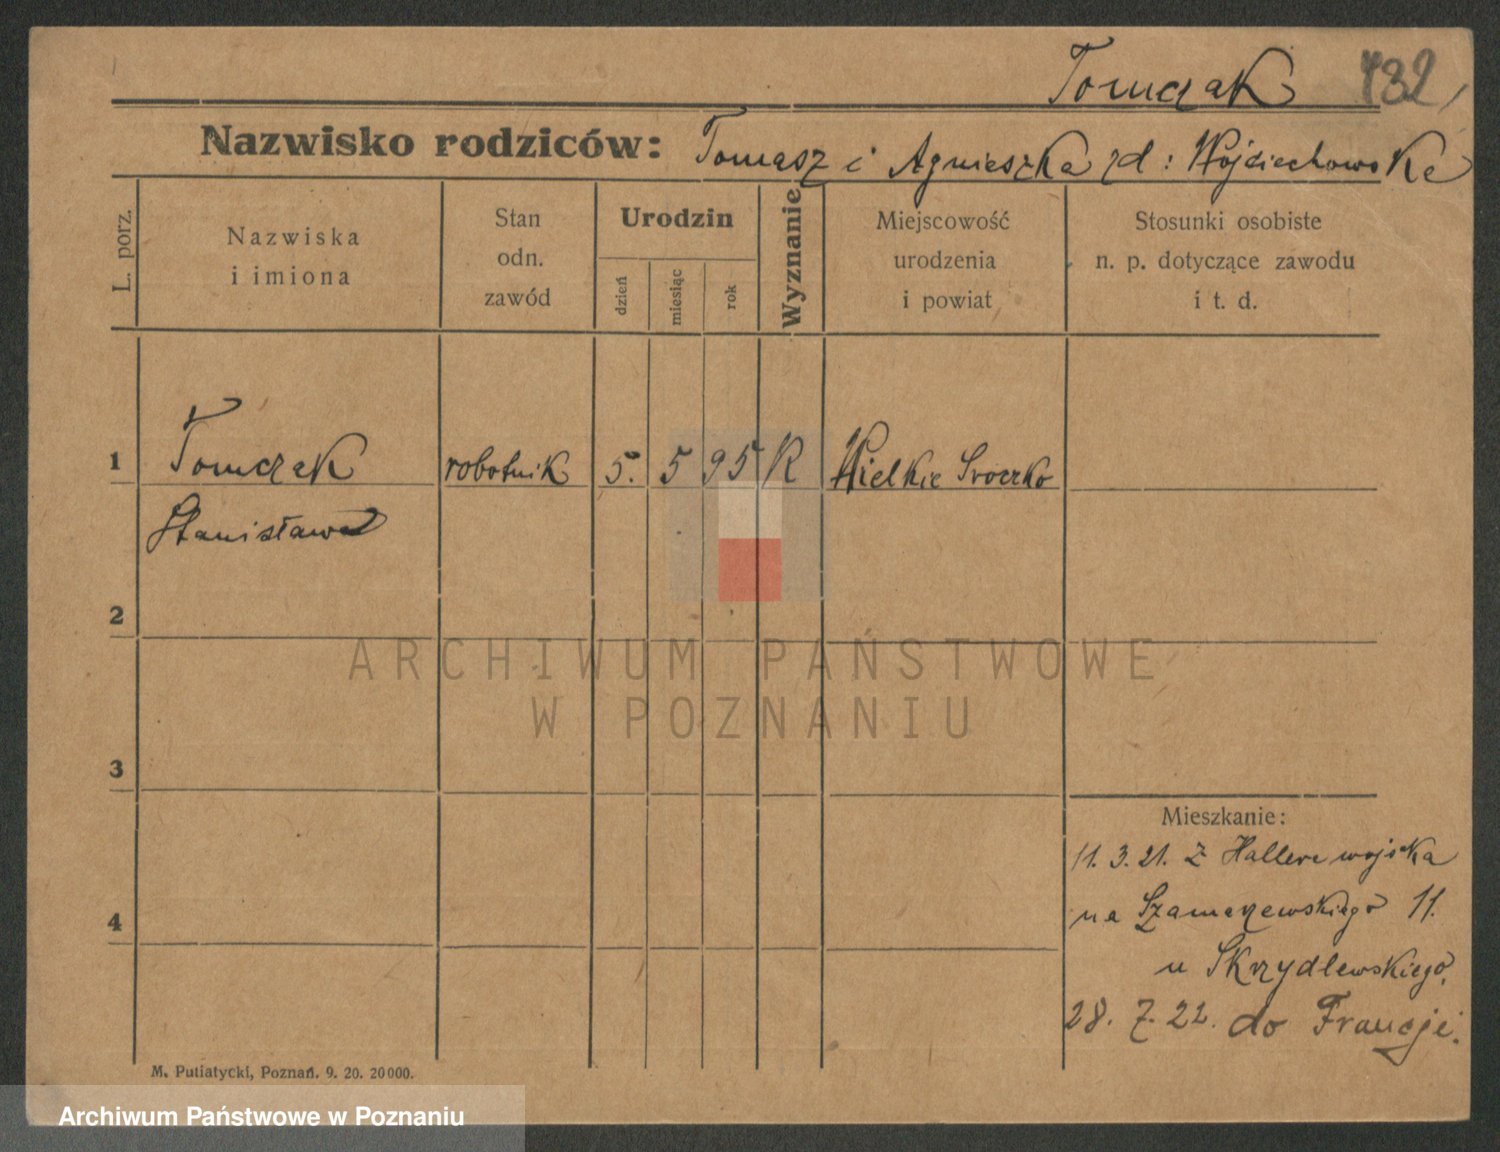 Tomczak 732
Nazwisko rodziców: Tomasz i Agnieszka zd: Wojciechowska
L. porz.
Nazwiska
i imiona
Stan
odn.
zawód
Urodzin
dzień
miesiąc
rok
Wyznanie
Miejscowość
urodzenia
i powiat
Stosunki osobiste
n. p. dotyczące zawodu
i t. d.
1 Tomczak robotnik 5. 5 95 K Wielkie Sroczko
Stanisława
2
ARCHIWUM PAŃSTWOWE
W POZNANIU
3
Mieszkanie:
11. 3. 21. z Hallera wojska
4 na Szamarzewskiego 11.
u Skrzydlewskiego.
28. 7. 22. do Francji.
M. Putiatycki, Poznań. 9. 20. 20000.
Archiwum Państwowe w Poznaniu